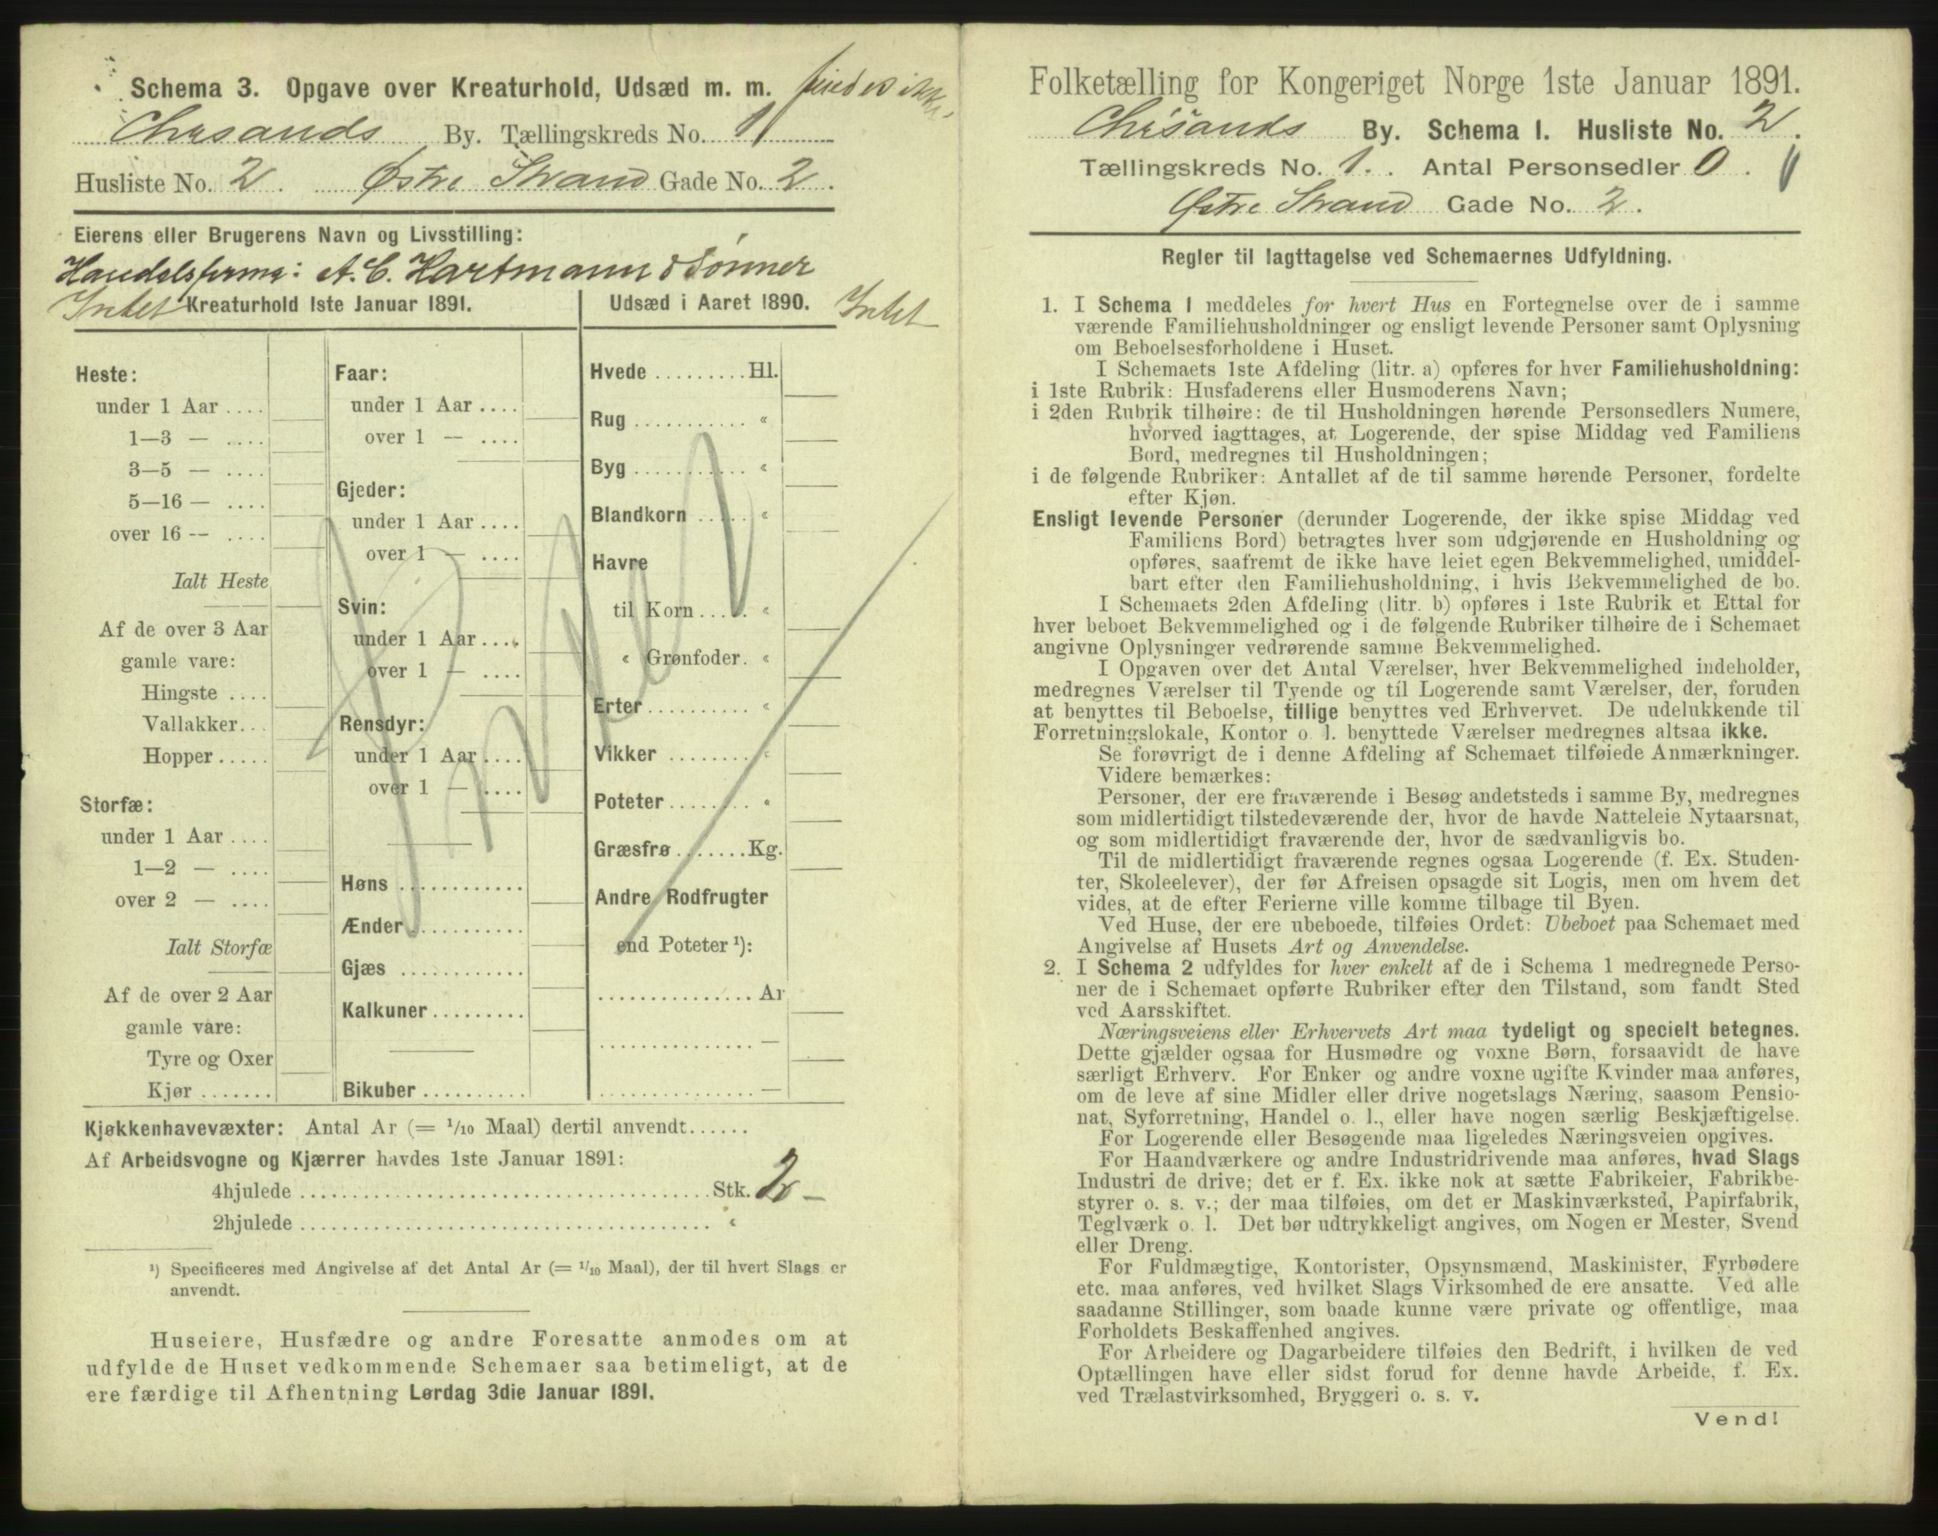 Schema 3. Opgave over Kreaturhold, Udsæd m. m. findes ikke.
Chrsands By. Tællingskreds No. 1
Husliste No. 2. Østre Strand Gade No. 2.
Eierens eller Brugerens Navn og Livsstilling:
Handelsfirma: A. C. Hartmann & Sønner
Intet Kreaturhold 1ste Januar 1891.
Udsæd i Aaret 1890. Intet
Heste:
under 1 Aar ....
1—3 — ....
3—5 — ....
5—16 — ....
over 16 -- ....
Ialt Heste
Af de over 3 Aar
gamle vare:
Hingste ....
Vallakker...
Hopper .....
Storfæ:
under 1 Aar ....
1—2 — ....
over 2 — ....
Ialt Storfæ
Af de over 2 Aar
gamle vare:
Tyre og Oxer
Kjør .......
Faar:
under 1 Aar ....
over 1 — ....
Gjeder:
under 1 Aar ....
over 1 — ....
Svin:
under 1 Aar ....
over 1 — ....
Rensdyr:
under 1 Aar ....
over 1 — ....
Høns ............
Ænder ..........
Gjæs ............
Kalkuner .........
Bikuber ..........
Hvede ......... Hl.
Rug ........... «
Byg ........... «
Blandkorn ...... «
Havre
til Korn ..... «
« Grønfoder. «
Erter .......... «
Vikker ........ «
Poteter ........ «
Græsfrø ....... Kg.
Andre Rodfrugter
end Poteter ¹):
............... Ar
............... —
............... —
Kjøkkenhavevæxter: Antal Ar (= 1/10 Maal) dertil anvendt......
Af Arbeidsvogne og Kjærrer havdes 1ste Januar 1891:
4hjulede ........................................ Stk. 2 —
2hjulede ........................................ «
¹) Specificeres med Angivelse af det Antal Ar (= 1/10 Maal), der til hvert Slags er
anvendt.
Huseiere, Husfædre og andre Foresatte anmodes om at
udfylde de Huset vedkommende Schemaer saa betimeligt, at de
ere færdige til Afhentning Lørdag 3die Januar 1891.
Folketælling for Kongeriget Norge 1ste Januar 1891.
Chrsands By. Schema 1. Husliste No. 2.
Tællingskreds No. 1. Antal Personsedler 0.
Østre Strand Gade No. 2.
Regler til Iagttagelse ved Schemaernes Udfyldning.
1. I Schema 1 meddeles for hvert Hus en Fortegnelse over de i samme
værende Familiehusholdninger og ensligt levende Personer samt Oplysning
om Beboelsesforholdene i Huset.
I Schemaets 1ste Afdeling (litr. a) opføres for hver Familiehusholdning:
i 1ste Rubrik: Husfaderens eller Husmoderens Navn;
i 2den Rubrik tilhøire: de til Husholdningen hørende Personsedlers Numere,
hvorved iagttages, at Logerende, der spise Middag ved Familiens
Bord, medregnes til Husholdningen;
i de følgende Rubriker: Antallet af de til samme hørende Personer, fordelte
efter Kjøn.
Ensligt levende Personer (derunder Logerende, der ikke spise Middag ved
Familiens Bord) betragtes hver som udgjørende en Husholdning og
opføres, saafremt de ikke have leiet egen Bekvemmelighed, umiddel-
bart efter den Familiehusholdning, i hvis Bekvemmelighed de bo.
I Schemaets 2den Afdeling (litr. b) opføres i 1ste Rubrik et Ettal for
hver beboet Bekvemmelighed og i de følgende Rubriker tilhøire de i Schemaet
angivne Oplysninger vedrørende samme Bekvemmelighed.
I Opgaven over det Antal Værelser, hver Bekvemmelighed indeholder,
medregnes Værelser til Tyende og til Logerende samt Værelser, der, foruden
at benyttes til Beboelse, tillige benyttes ved Erhvervet. De udelukkende til
Forretningslokale, Kontor o. l. benyttede Værelser medregnes altsaa ikke.
Se forøvrigt de i denne Afdeling af Schemaet tilføiede Anmærkninger.
Videre bemærkes:
Personer, der ere fraværende i Besøg andetsteds i samme By, medregnes
som midlertidigt tilstedeværende der, hvor de havde Natteleie Nytaarsnat,
og som midlertidigt fraværende der, hvor de sædvanligvis bo.
Til de midlertidigt fraværende regnes ogsaa Logerende (f. Ex. Studen-
ter, Skoleelever), der før Afreisen opsagde sit Logis, men om hvem det
vides, at de efter Ferierne ville komme tilbage til Byen.
Ved Huse, der ere ubeboede, tilføies Ordet: Ubeboet paa Schemaet med
Angivelse af Husets Art og Anvendelse.
2. I Schema 2 udfyldes for hver enkelt af de i Schema 1 medregnede Perso-
ner de i Schemaet opførte Rubriker efter den Tilstand, som fandt Sted
ved Aarsskiftet.
Næringsveiens eller Erhvervets Art maa tydeligt og specielt betegnes.
Dette gjælder ogsaa for Husmødre og voxne Børn, forsaavidt de have
særligt Erhverv. For Enker og andre voxne ugifte Kvinder maa anføres,
om de leve af sine Midler eller drive nogetslags Næring, saasom Pensio-
nat, Syforretning, Handel o. l., eller have nogen særlig Beskjæftigelse.
For Logerende eller Besøgende maa ligeledes Næringsveien opgives.
For Haandværkere og andre Industridrivende maa anføres, hvad Slags
Industri de drive; det er f. Ex. ikke nok at sætte Fabrikeier, Fabrikbe-
styrer o. s. v.; der maa tilføies, om det er Maskinværksted, Papirfabrik,
Teglværk o. l. Det bør udtrykkeligt angives, om Nogen er Mester, Svend
eller Dreng.
For Fuldmægtige, Kontorister, Opsynsmænd, Maskinister, Fyrbødere
etc. maa anføres, ved hvilket Slags Virksomhed de ere ansatte. Ved alle
saadanne Stillinger, som baade kunne være private og offentlige, maa
Forholdets Beskaffenhed angives.
For Arbeidere og Dagarbeidere tilføies den Bedrift, i hvilken de ved
Optællingen have eller sidst forud for denne havde Arbeide, f. Ex.
ved Trælastvirksomhed, Bryggeri o. s. v.
Vend!